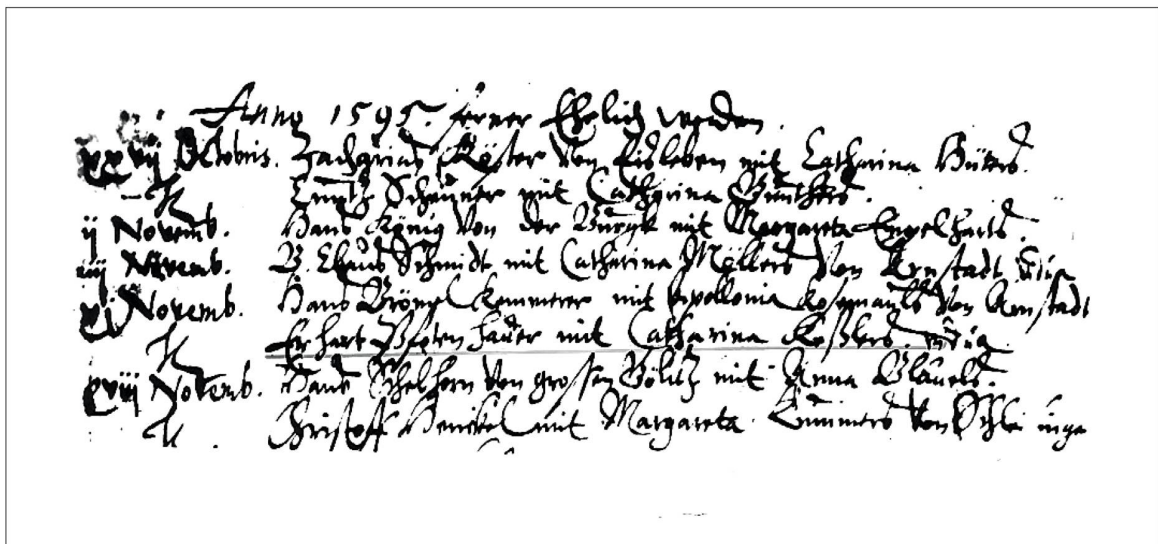 Anno 1595. ferner Ehelich worden.
xxvij Octobris. Zacharias Köster von Eisleben mit Catharina Büters.
Cuntz Scheuner mit Catharina Günthers.
ij Novemb. Hans König von der Burgk mit Margareta Engelharts.
iiij Novemb. B. Claus Schmidt mit Catharina Möllers von Arnstadt
xj Novemb. Hans Kemmerer mit Apollonia von Arnstadt
Erhart mit Catharina Keßlers.
xviij Novemb. Hans Schelhorn von grossen Bölitz mit Anna Blauels.
Christoff Henckel mit Margareta von